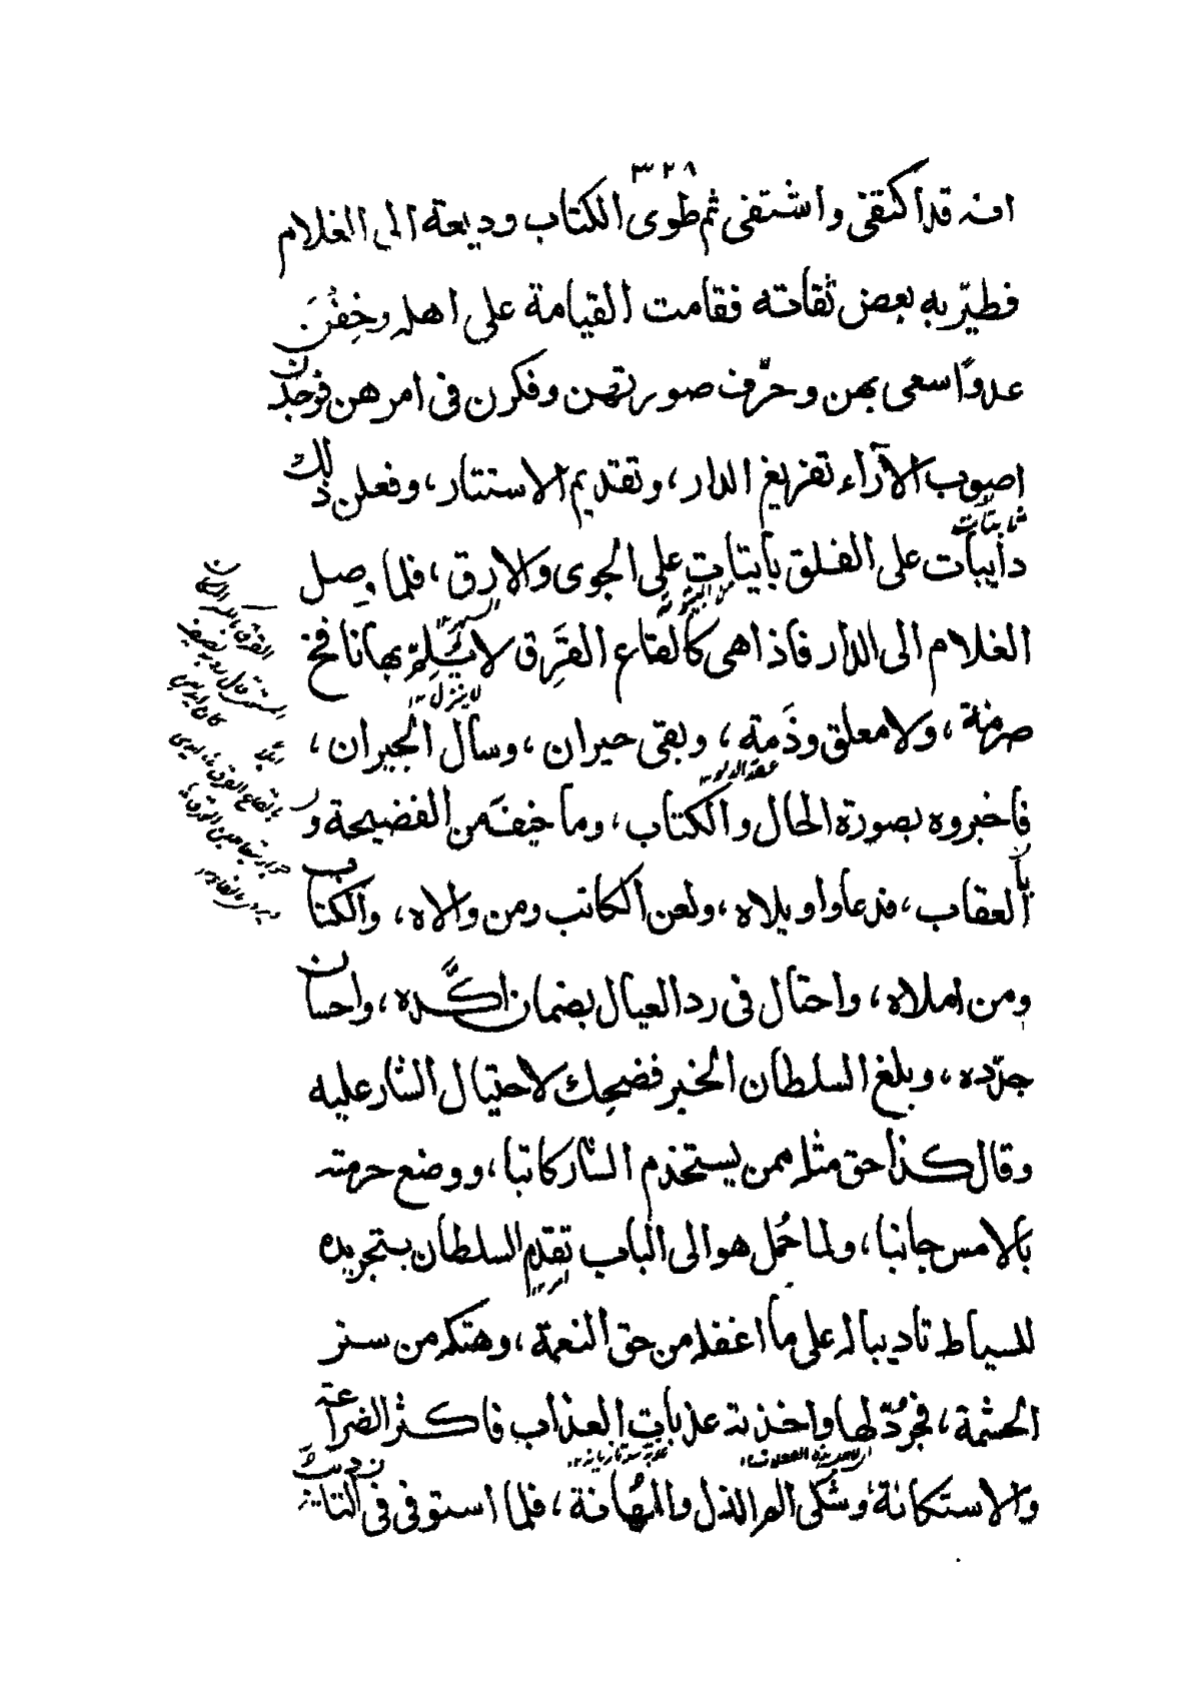 ٣٢٨
انه قد اكتفى واشتفى ثم طوى الكتاب وديعة الى الغلام
فطيّر به بعض ثقاته فقامت القيامة على اهله وخِفْنَ
عدوًّا سعى بهن وحرّف صورتهن وفكرن فى امرهن فوجدن
اصوب الآراء تفريغ الدار، وتقديم الاستتار، وفعلن ذلك
دايبات على القلق بايتات على الجوى والارق، فلما وصل
الغلام الى الدار فاذا هى كالقاع القَرِق لا يُلِمّ بها نافخ
ضرمة، ولا معلق وذَمة، وبقى حيران، وسأل الجيران،
فاخبروه بصورة الحال والكتاب، وما خيف من الفضيحة و
العقاب، فدعا واويلاه، ولعن الكاتب ومن والاه، والكتاب
ومن املاه، واحتال فى رد العيال بضمان اكّده، واحسان
جدّده، وبلغ السلطان الخبر فضحك لاحتيال الشار عليه
وقال كذا حق مثله ممن يستخدم الشار كاتبا، ووضع حرمته
بالامس جانبا، ولما حُمل هو الى الباب تقدم السلطان بتجريده
للسياط تاديبا له على ما اغفله من حق النعمة، وهتكه من ستر
الحشمة، فجُرّد لها واخذته عذبات العذاب فاكثر الضراعة
والاستكانة وشكى الم الذل والمهانة، فلما استوفى فى التاديب